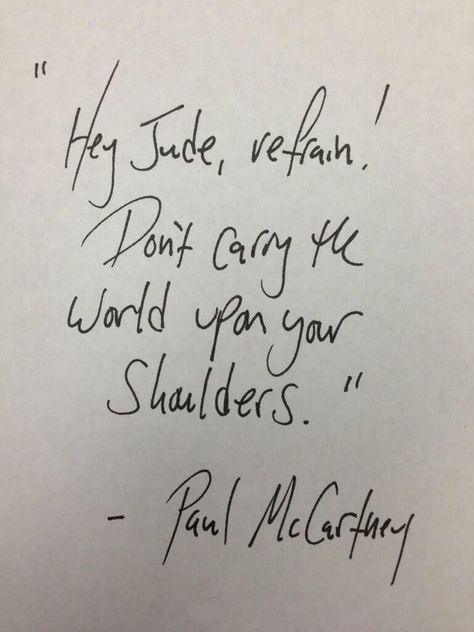 "Hey Jude, refrain!
Don't carry the
World upon your
Shoulders."
- Paul McCartney